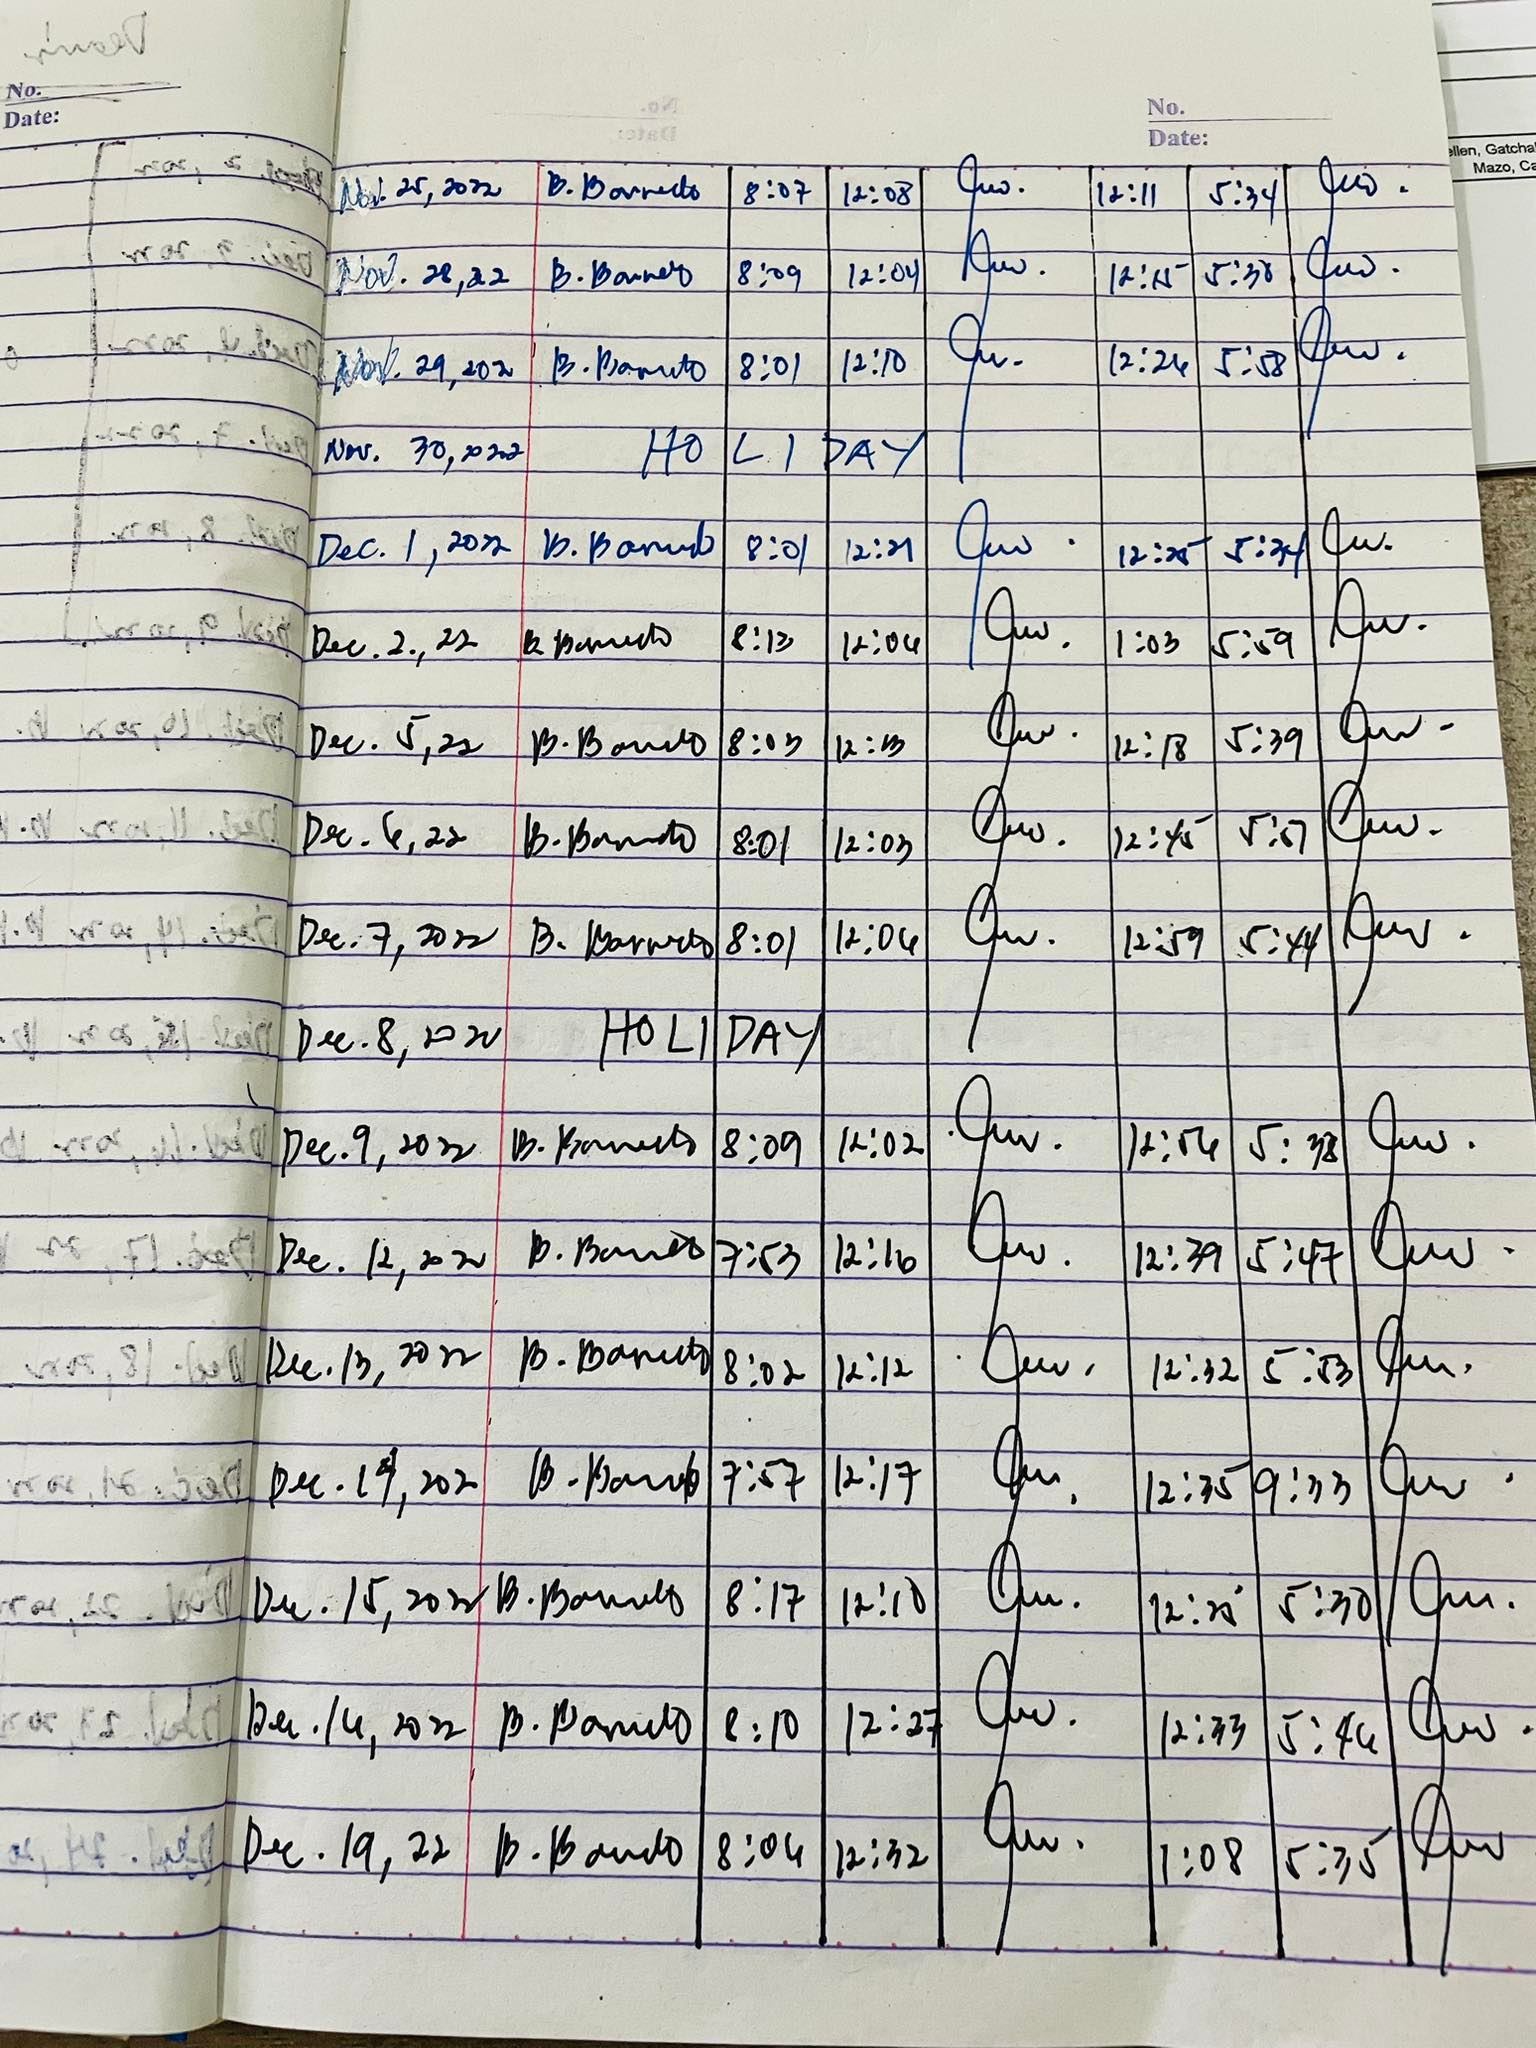 No.
Date:
No.
Date:
ellen, Gatchal
Mazo, Ca
Nov. 25, 2022 B. Barreto 8:07 12:08 12:11 5:34
Nov. 28, 22 B. Barreto 8:09 12:04 12:15 5:38
Nov. 29, 202 B. Barreto 8:01 12:10 12:26 5:58
Nov. 30, 2022 HOLIDAY
Dec. 1, 2022 B. Barreto 8:01 12:21 12:25 5:34
Dec. 2, 22 B Barreto 8:13 12:06 1:03 5:59
Dec. 5, 22 B. Barreto 8:03 12:13 12:18 5:39
Dec. 6, 22 B. Barreto 8:01 12:03 12:45 5:57
Dec. 7, 2022 B. Barreto 8:01 12:06 12:59 5:44
Dec. 8, 2022 HOLIDAY
Dec. 9, 2022 B. Barreto 8:09 12:02 12:56 5:38
Dec. 12, 2022 B. Barreto 7:53 12:16 12:39 5:47
Dec. 13, 2022 B. Barreto 8:02 12:12 12:32 5:53
Dec. 14, 202 B. Barreto 7:57 12:17 12:35 9:33
Dec. 15, 2022 B. Barreto 8:17 12:10 12:25 5:30
Dec. 16, 2022 B. Barreto 8:10 12:27 12:33 5:46
Dec. 19, 22 B. Barreto 8:06 12:32 1:08 5:35